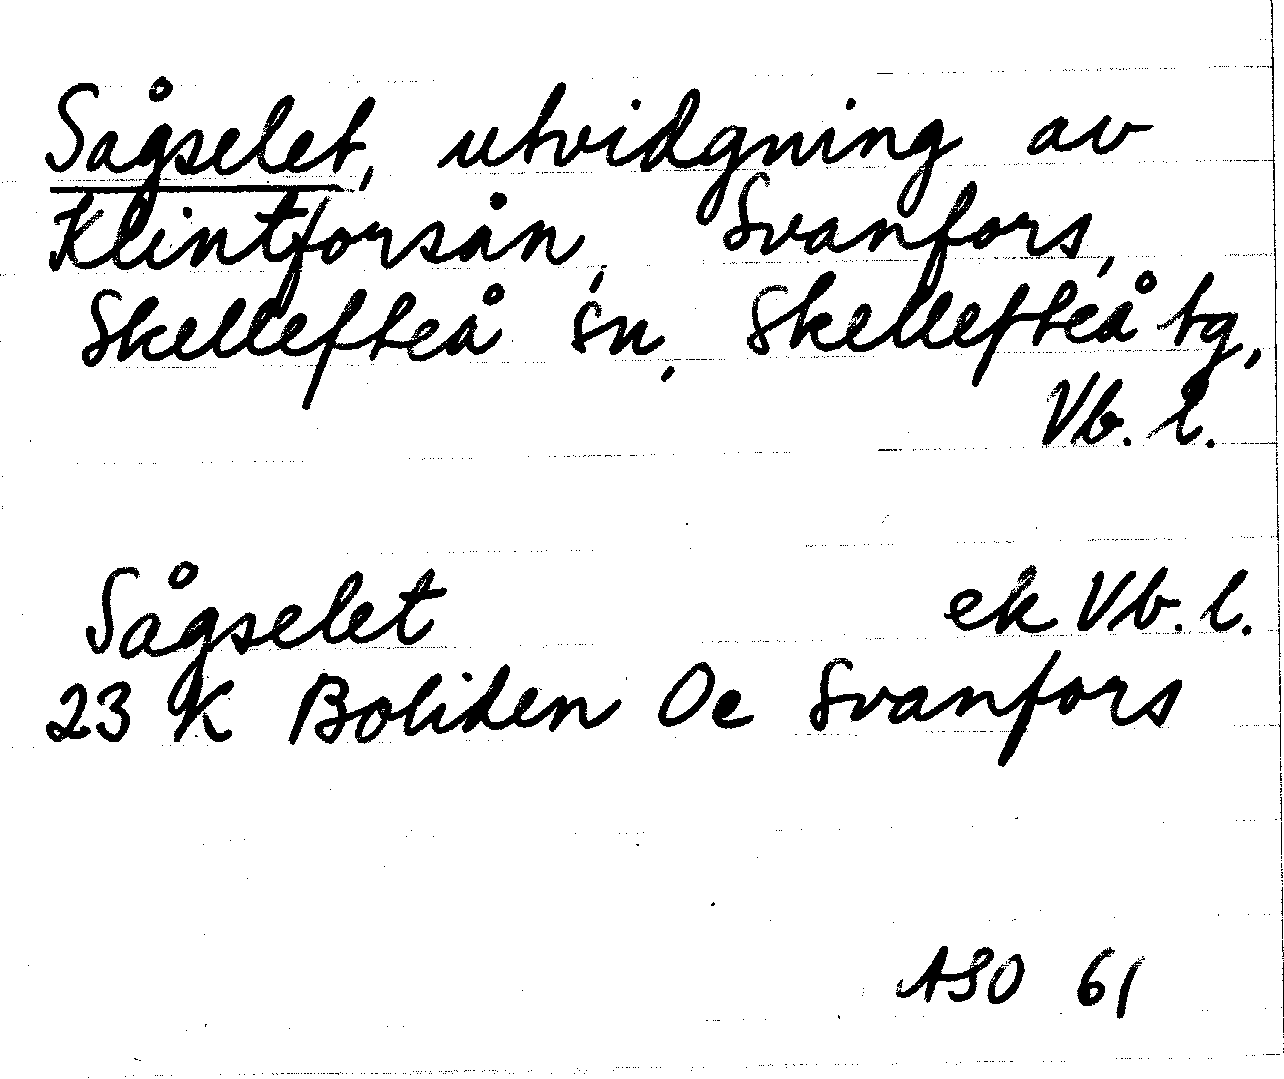 Sågselet, utvidgning av
Klintforsån, Svanfors,
Skellefteå sn, Skellefteå tg,
Vb. l.
Sågselet ek Vb. l.
23 K Boliden Oe Svanfors
ASO 61